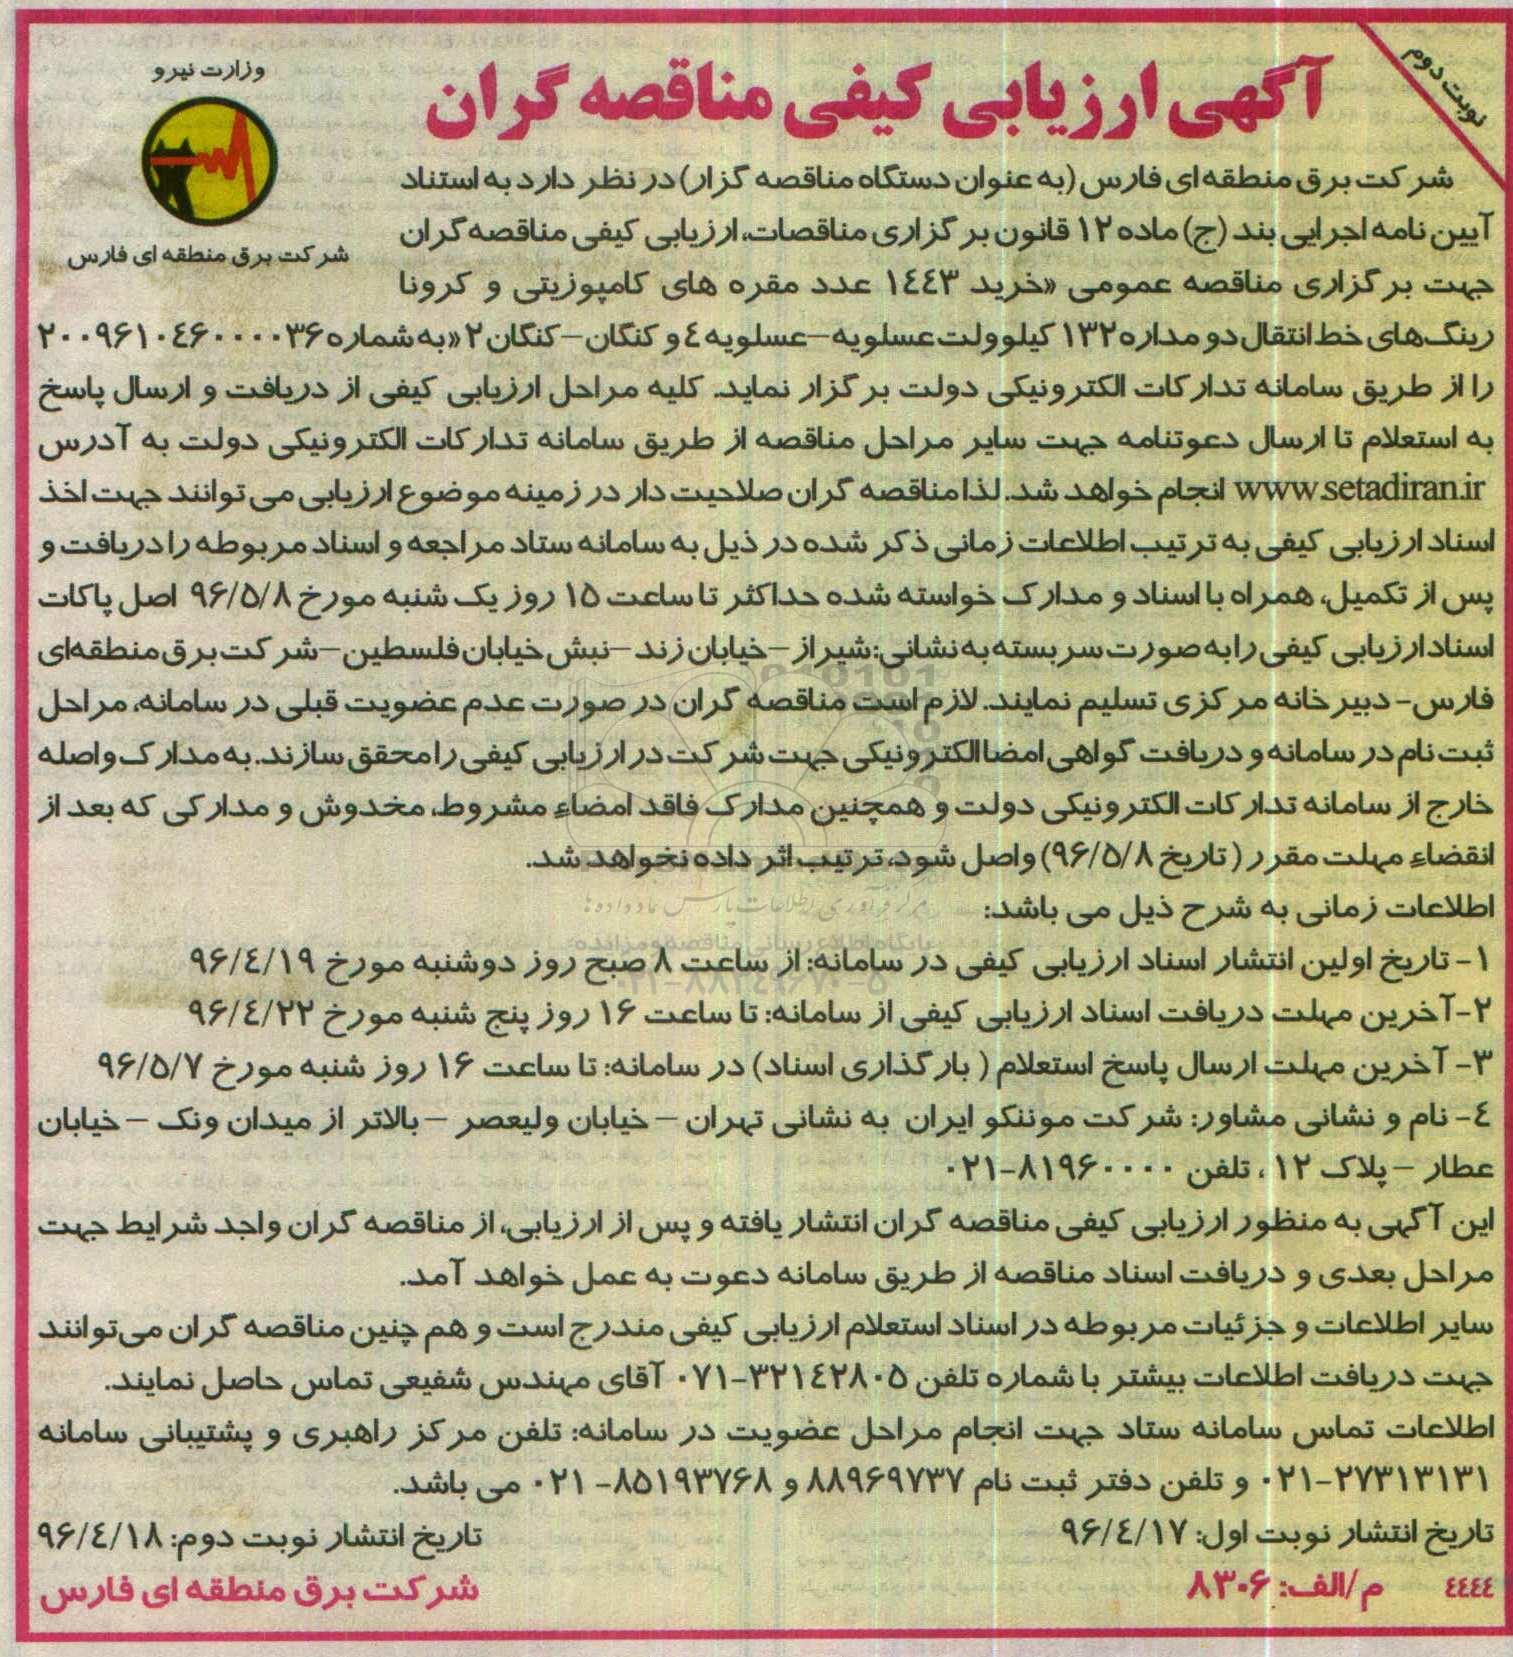 نوبت دوم
آگهی ارزیابی کیفی مناقصه گران
وزارت نیرو
شرکت برق منطقه ای فارس
شرکت برق منطقه‌ای فارس (به عنوان دستگاه مناقصه گزار) در نظر دارد به استناد
آیین نامه اجرایی بند (ج) ماده ۱۲ قانون برگزاری مناقصات، ارزیابی کیفی مناقصه گران
جهت برگزاری مناقصه عمومی «خرید ۱۴۴۳ عدد مقره های کامپوزیتی و کرونا
رینگ‌های خط انتقال دو مداره ۱۳۲ کیلوولت عسلویه–عسلویه ۴ و کنگان–کنگان ۲» به شماره ۲۰۰۹۶۱۰۴۶۰۰۰۰۳۶
را از طریق سامانه تدارکات الکترونیکی دولت برگزار نماید. کلیه مراحل ارزیابی کیفی از دریافت و ارسال پاسخ
به استعلام تا ارسال دعوتنامه جهت سایر مراحل مناقصه از طریق سامانه تدارکات الکترونیکی دولت به آدرس
www.setadiran.ir انجام خواهد شد. لذا مناقصه گران صلاحیت دار در زمینه موضوع ارزیابی می توانند جهت اخذ
اسناد ارزیابی کیفی به ترتیب اطلاعات زمانی ذکر شده در ذیل به سامانه ستاد مراجعه و اسناد مربوطه را دریافت و
پس از تکمیل، همراه با اسناد و مدارک خواسته شده حداکثر تا ساعت ۱۵ روز یک شنبه مورخ ۹۶/۵/۸ اصل پاکات
اسناد ارزیابی کیفی را به صورت سربسته به نشانی: شیراز–خیابان زند–نبش خیابان فلسطین–شرکت برق منطقه‌ای
فارس- دبیرخانه مرکزی تسلیم نمایند. لازم است مناقصه گران در صورت عدم عضویت قبلی در سامانه، مراحل
ثبت نام در سامانه و دریافت گواهی امضا الکترونیکی جهت شرکت در ارزیابی کیفی را محقق سازند. به مدارک واصله
خارج از سامانه تدارکات الکترونیکی دولت و همچنین مدارک فاقد امضاء، مشروط، مخدوش و مدارکی که بعد از
انقضاء مهلت مقرر (تاریخ ۹۶/۵/۸) واصل شود، ترتیب اثر داده نخواهد شد.
اطلاعات زمانی به شرح ذیل می باشد:
۱- تاریخ اولین انتشار اسناد ارزیابی کیفی در سامانه: از ساعت ۸ صبح روز دوشنبه مورخ ۹۶/۴/۱۹
۲-آخرین مهلت دریافت اسناد ارزیابی کیفی از سامانه: تا ساعت ۱۶ روز پنج شنبه مورخ ۹۶/۴/۲۲
۳- آخرین مهلت ارسال پاسخ استعلام (بارگذاری اسناد) در سامانه: تا ساعت ۱۶ روز شنبه مورخ ۹۶/۵/۷
۴- نام و نشانی مشاور: شرکت موننکو ایران به نشانی تهران – خیابان ولیعصر – بالاتر از میدان ونک – خیابان
عطار – پلاک ۱۲ ، تلفن ۸۱۹۶۰۰۰۰-۰۲۱
این آگهی به منظور ارزیابی کیفی مناقصه گران انتشار یافته و پس از ارزیابی، از مناقصه گران واجد شرایط جهت
مراحل بعدی و دریافت اسناد مناقصه از طریق سامانه دعوت به عمل خواهد آمد.
سایر اطلاعات و جزئیات مربوطه در اسناد استعلام ارزیابی کیفی مندرج است و هم چنین مناقصه گران می‌توانند
جهت دریافت اطلاعات بیشتر با شماره تلفن ۳۲۱۴۲۸۰۵-۰۷۱ آقای مهندس شفیعی تماس حاصل نمایند.
اطلاعات تماس سامانه ستاد جهت انجام مراحل عضویت در سامانه: تلفن مرکز راهبری و پشتیبانی سامانه
۲۷۳۱۳۱۳۱-۰۲۱ و تلفن دفتر ثبت نام ۸۸۹۶۹۷۳۷ و ۸۵۱۹۳۷۶۸- ۰۲۱ می باشد.
تاریخ انتشار نوبت اول: ۹۶/۴/۱۷
تاریخ انتشار نوبت دوم: ۹۶/۴/۱۸
۴۴۴۴ م/الف: ۸۳۰۶
شرکت برق منطقه ای فارس